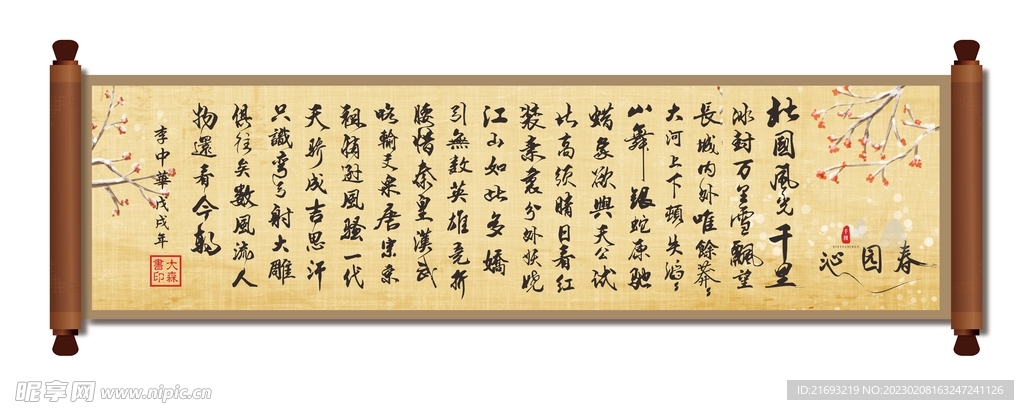 沁园春
北國風光千里
冰封万里雪飄望
長城内外唯餘莽々
大河上下頓失滔々
山舞銀蛇原馳
蜡象欲與天公試
比高須晴日看紅
裝素裹分外妖嬈
江山如此多嬌
引無数英雄竞折
腰惜秦皇漢武
略輸文采唐宗宋
祖稍遜風騷一代
天驕成吉思汗
只識彎弓射大雕
俱往矣数風流人
物還看今朝
李中華戊戌年
大森
書印
昵享网 www.nipic.cn
ID:21693219 NO:20230208163247241126